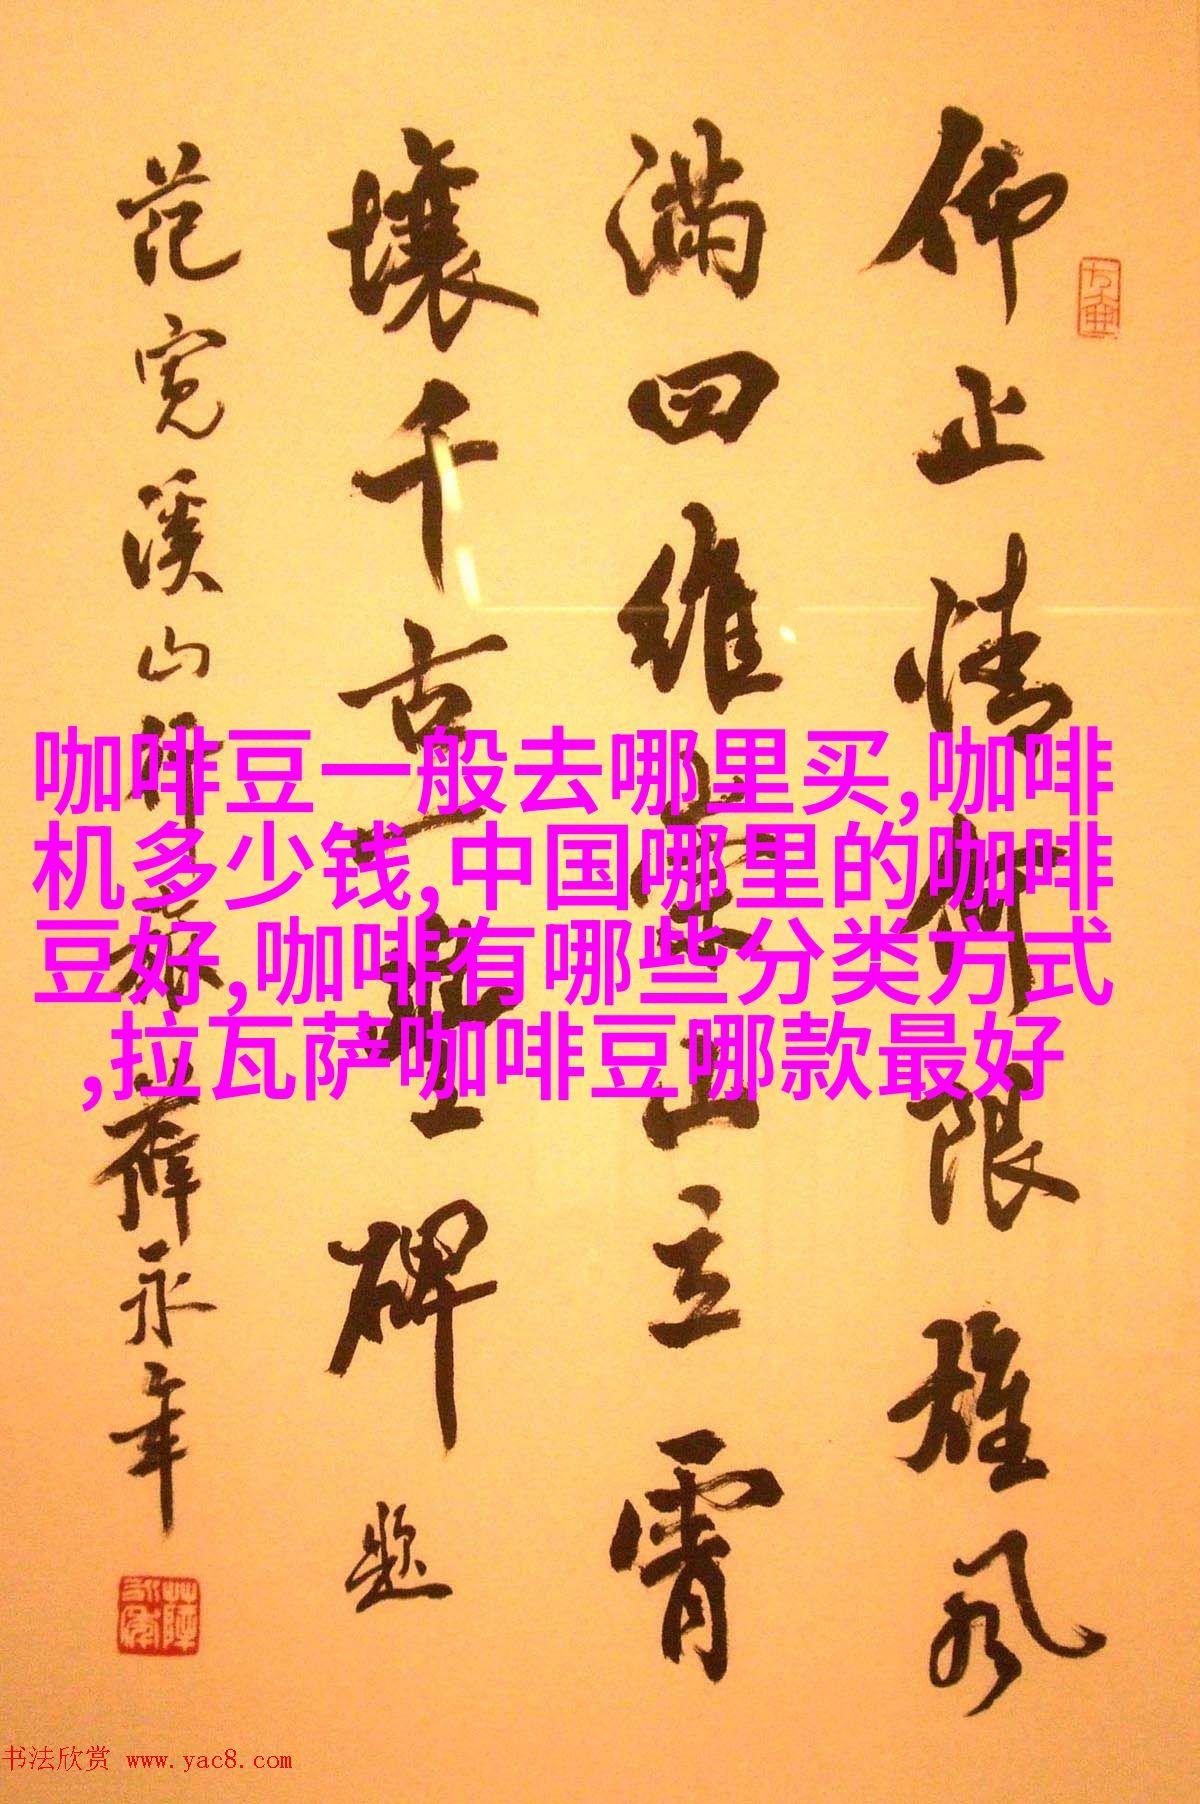 仰止情何限雄风
满四维崇山立霄
壤千古一丰碑
题
范宽溪山行旅 薛永年
咖啡豆一般去哪里买,咖啡
机多少钱,中国哪里的咖啡
豆好,咖啡有哪些分类方式
,拉瓦萨咖啡豆哪款最好
书法欣赏 www.yac8.com